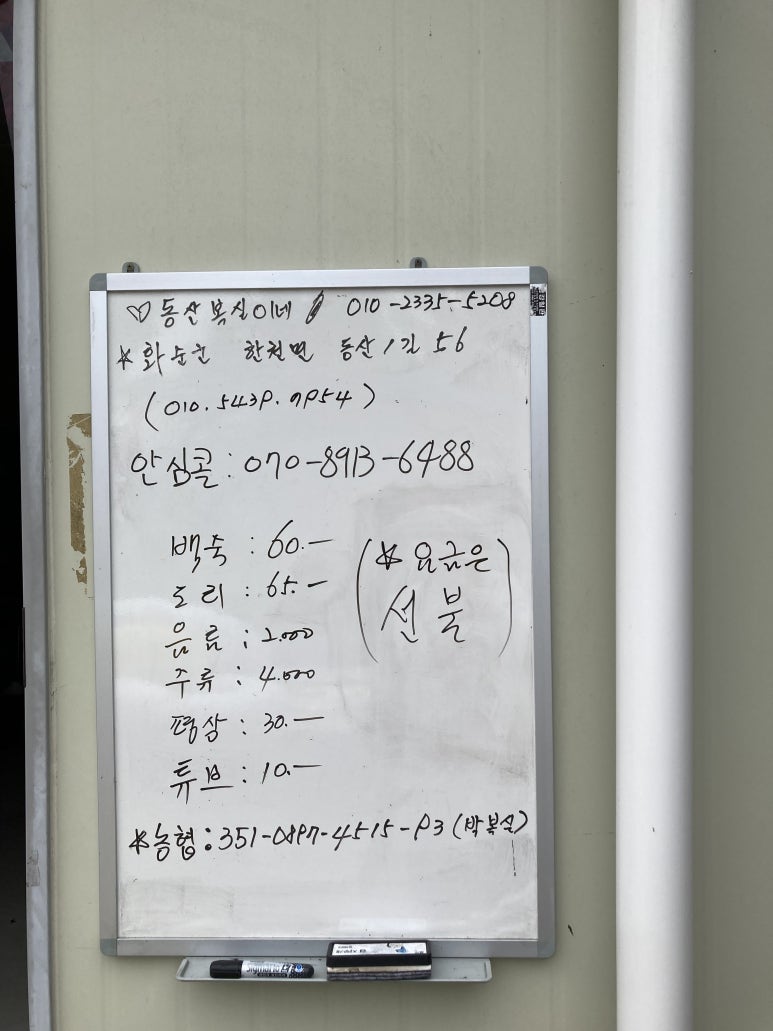 ♡ 동산복실이네 010-2335-5208
☆ 화순군 한천면 동산1길 56
(010.5439.9954)
안심콜 : 070-8913-6488
백숙 : 60.—
도리 : 65.—
음료 : 2.000
주류 : 4.000
평상 : 30.—
튜브 : 10.—
(☆ 요금은
선불)
☆농협 : 351-0897-4515-93 (박복실)